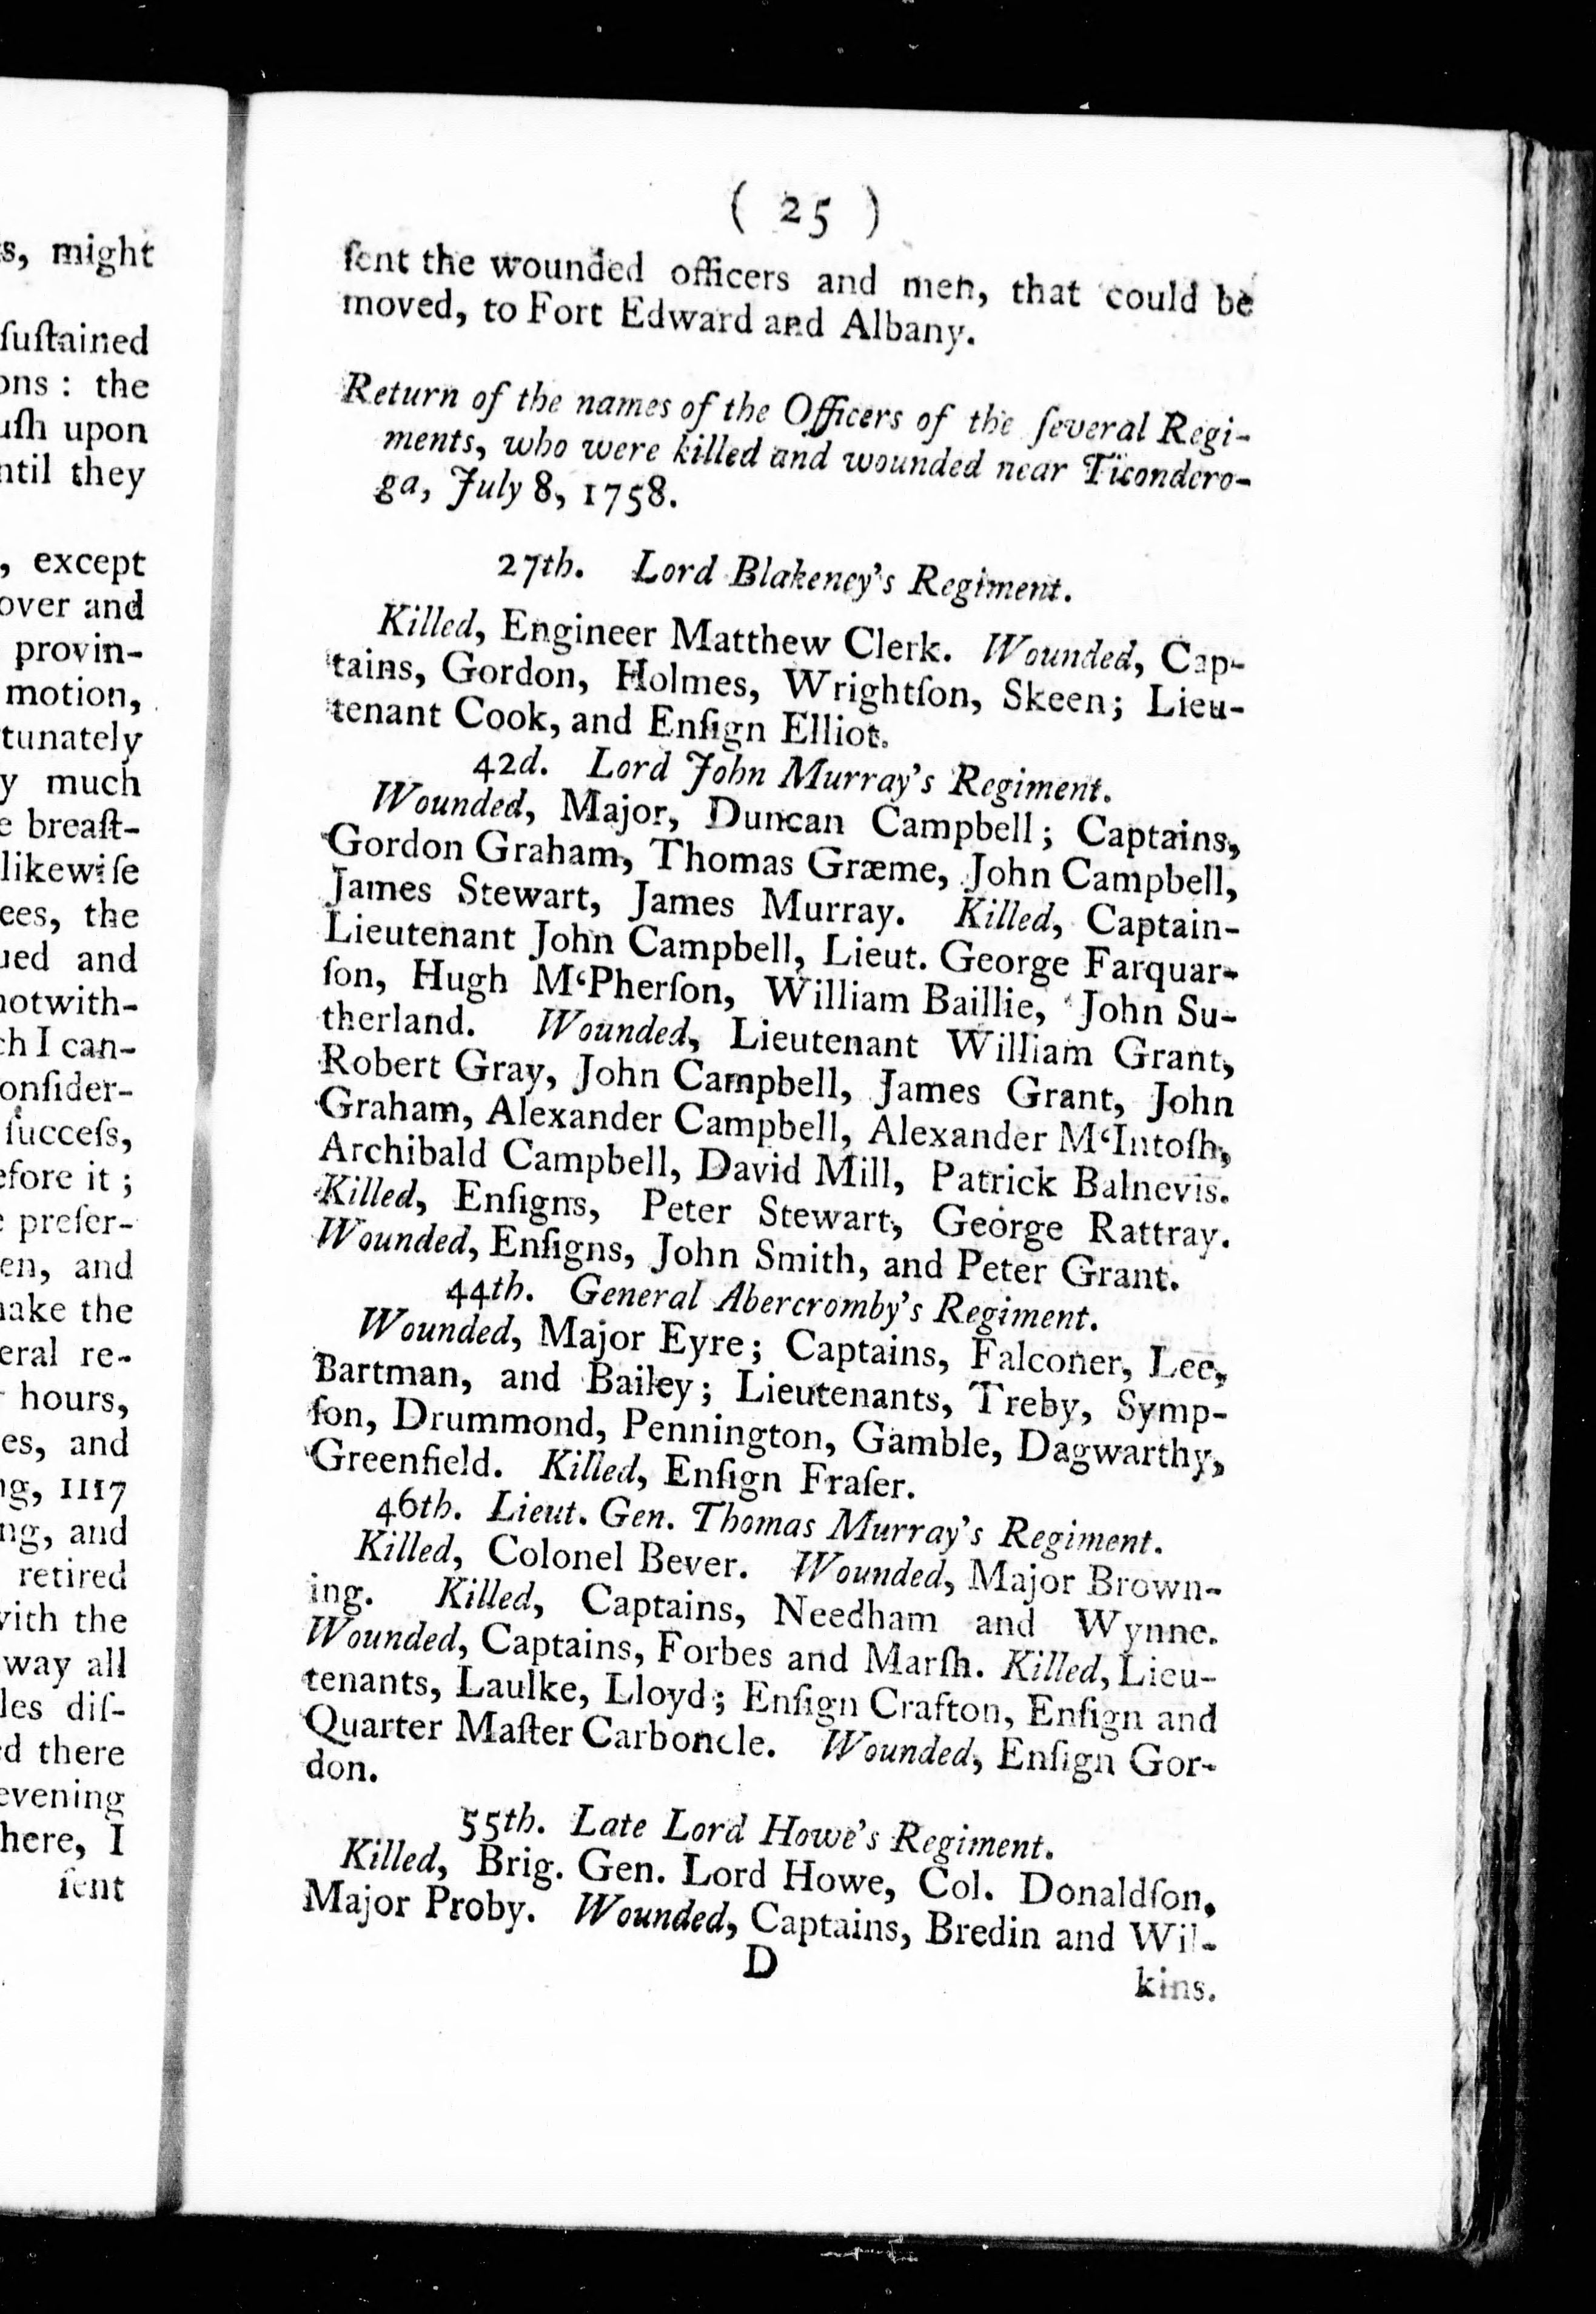 s, might
sustained
ons : the
ush upon
ntil they
, except
over and
provin-
motion,
tunately
y much
e breast-
likewise
ees, the
ued and
notwith-
ch I can-
onsider-
success,
efore it ;
e preser-
en, and
nake the
eral re-
hours,
es, and
ng, 1117
ng, and
retired
with the
way all
les dis-
d there
evening
here, I
sent
( 25 )
ſent the wounded officers and men, that could be
moved, to Fort Edward and Albany.
Return of the names of the Officers of the ſeveral Regi-
ments, who were killed and wounded near Ticondero-
ga, July 8, 1758.
27th. Lord Blakeney's Regiment.
Killed, Engineer Matthew Clerk. Wounded, Cap-
tains, Gordon, Holmes, Wrightſon, Skeen; Lieu-
tenant Cook, and Enſign Elliot.
42d. Lord John Murray's Regiment.
Wounded, Major, Duncan Campbell; Captains,
Gordon Graham, Thomas Græme, John Campbell,
James Stewart, James Murray. Killed, Captain-
Lieutenant John Campbell, Lieut. George Farquar-
ſon, Hugh M‘Pherſon, William Baillie, John Su-
therland. Wounded, Lieutenant William Grant,
Robert Gray, John Campbell, James Grant, John
Graham, Alexander Campbell, Alexander M‘Intoſh,
Archibald Campbell, David Mill, Patrick Balnevis.
Killed, Enſigns, Peter Stewart, George Rattray.
Wounded, Enſigns, John Smith, and Peter Grant.
44th. General Abercromby's Regiment.
Wounded, Major Eyre; Captains, Falconer, Lee,
Bartman, and Bailey; Lieutenants, Treby, Symp-
ſon, Drummond, Pennington, Gamble, Dagwarthy,
Greenfield. Killed, Enſign Fraſer.
46th. Lieut. Gen. Thomas Murray's Regiment.
Killed, Colonel Bever. Wounded, Major Brown-
ing. Killed, Captains, Needham and Wynne.
Wounded, Captains, Forbes and Marſh. Killed, Lieu-
tenants, Laulke, Lloyd; Enſign Crafton, Enſign and
Quarter Maſter Carboncle. Wounded, Enſign Gor-
don.
55th. Late Lord Howe's Regiment.
Killed, Brig. Gen. Lord Howe, Col. Donaldſon,
Major Proby. Wounded, Captains, Bredin and Wil-
D
kins.